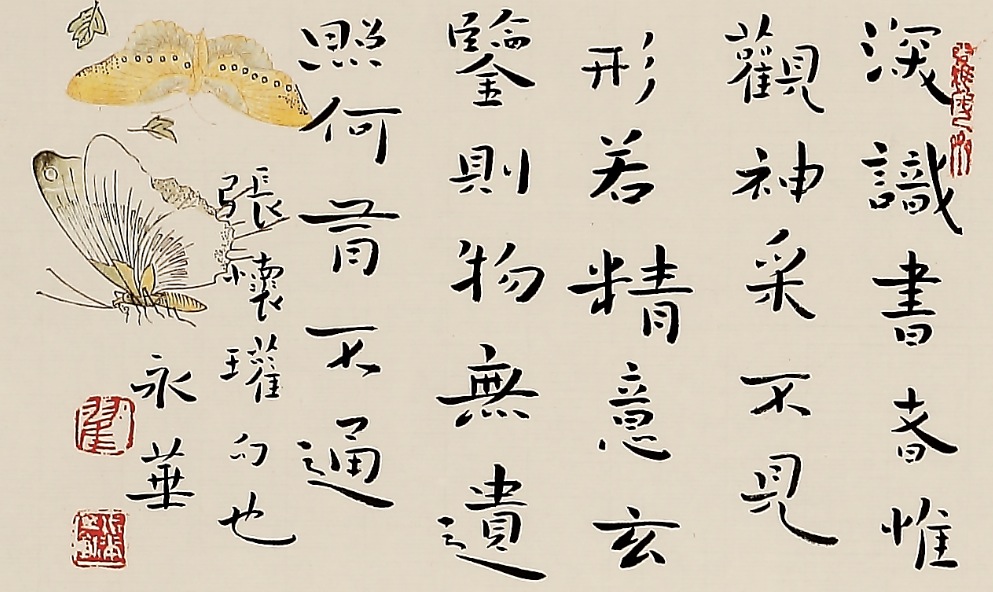 深識書者惟
觀神采不見
形若精意玄
鑒則物無遺
照何有不通
張懷瓘句也
永華
翟